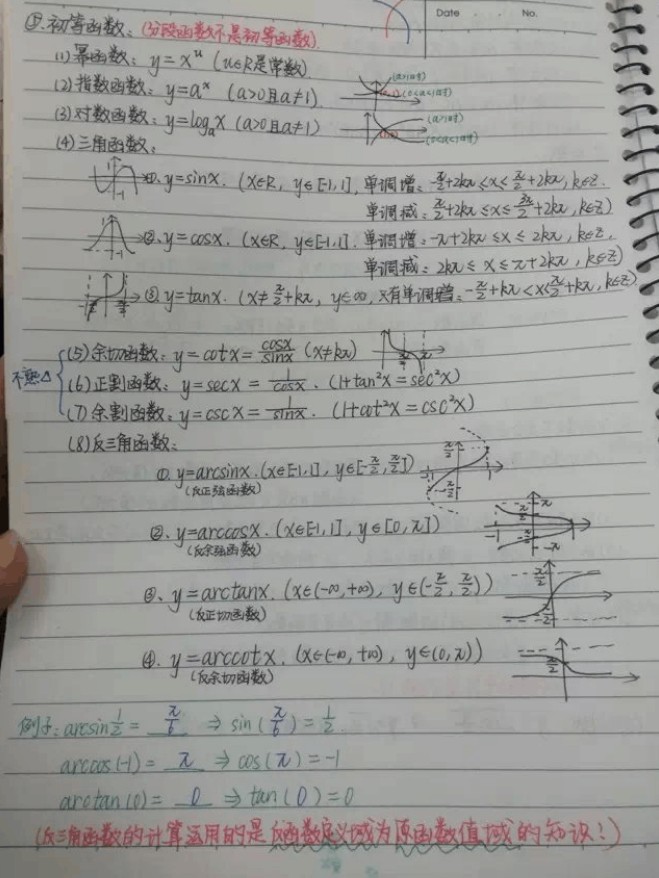 Date No.
⑤.初等函数：(分段函数不是初等函数).
(1)幂函数：y=xᵘ (u∈R是常数).
(2)指数函数：y=aˣ (a>0且a≠1). (a>1时) (0<a<1时)
(3)对数函数：y=logₐx (a>0且a≠1) (a>1时) (0<a<1时)
(4)三角函数：
①.y=sinx. (x∈R, y∈[-1,1], 单调增：-π/2+2kπ≤x≤π/2+2kπ, k∈Z.
单调减：π/2+2kπ≤x≤3π/2+2kπ, k∈Z)
②.y=cosx. (x∈R, y∈[-1,1]. 单调增：-π+2kπ≤x≤2kπ, k∈Z,
单调减：2kπ≤x≤π+2kπ, k∈Z)
③y=tanx. (x≠π/2+kπ, y∈∞, 只有单调增：-π/2+kπ<x<π/2+kπ, k∈Z)
(5)余切函数：y=cotx=cosx/sinx (x≠kπ)
不熟△
(6)正割函数：y=secx=1/cosx. (1+tan²x=sec²x)
(7)余割函数：y=cscx=1/sinx. (1+cot²x=csc²x)
(8)反三角函数：
①.y=arcsinx.(x∈[-1,1], y∈[-π/2,π/2])
(反正弦函数)
②.y=arccosx. (x∈[-1,1], y∈[0,π])
(反余弦函数)
③.y=arctanx. (x∈(-∞,+∞), y∈(-π/2,π/2))
(反正切函数)
④.y=arccotx. (x∈(-∞,+∞), y∈(0,π))
(反余切函数)
例子：arcsin1/2=π/6 ⇒sin(π/6)=1/2
arccos(-1)=π ⇒cos(π)=-1
arctan(0)=0 ⇒tan(0)=0
(反三角函数的计算运用的是反函数定义域为原函数值域的知识！)